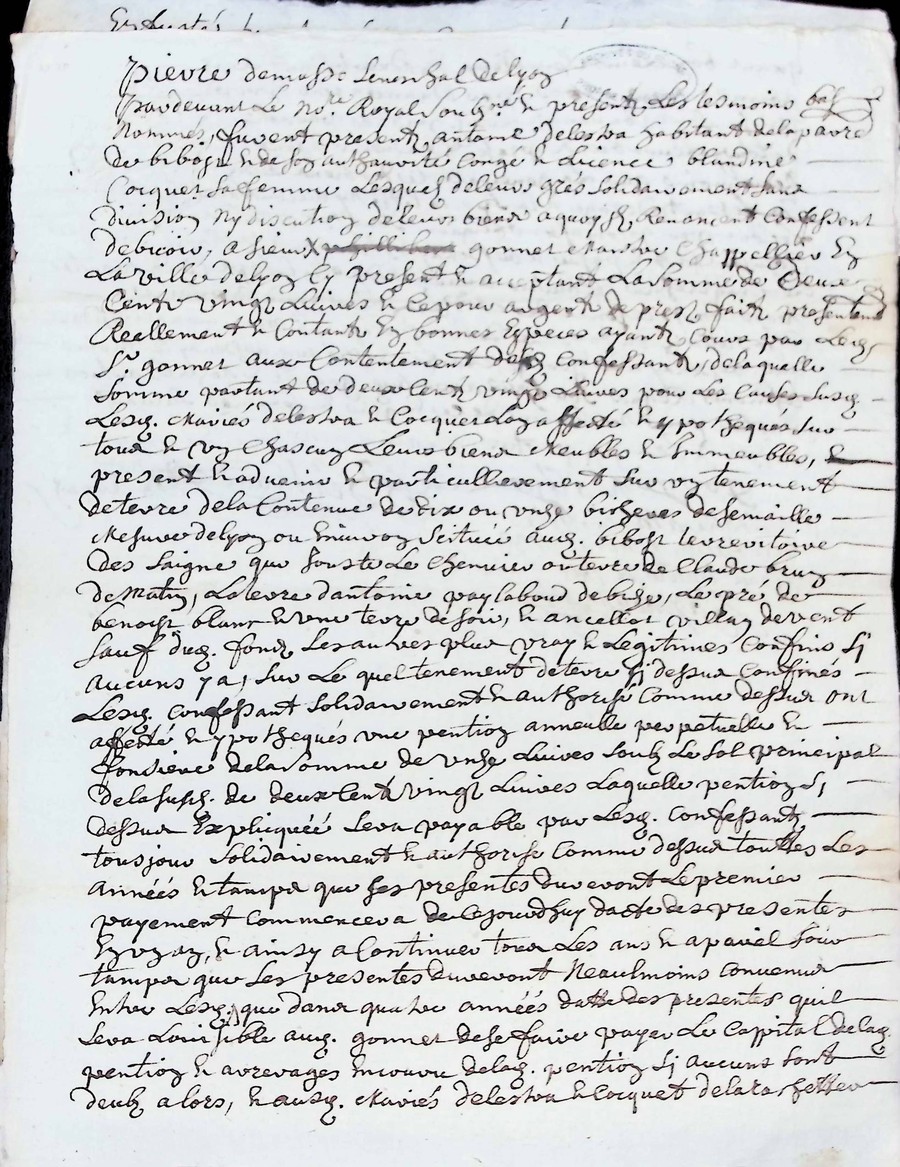 Pierre demasso Seneschal de lyon
Pardevant Le No.re Royal soubz.né & presentz Les tesmoins bas
Nommés, furent presentz antoine delestra habitant de la parre
de bibost & de son authorité Congé & Licence blandine
Cocquet sa femme Lesquels de leurs grés solidairement sans
division Ny discution de leurs biens a quoy ilz Renoncent Confessent
debvoir, a sieur gonnet Maistre Chappellier En
La ville de lyon Cy present & acceptant La Somme de Deux
Centz vingt Livres & Ce pour argent de prest faict presentement
Reellement & Contant En bonnes Especes ayantz Cours par Led.
Sr. gonnet aux Contentement desd Confessantz, de laquelle
somme partant de deux Centz vingt Livres pour Les Causes susd.
Lesd. Mariés delestra & Cocquet affecté & ypothequés sur
tous & un Chascun Leurs biens Meubles & Immeubles,
present & advenir & particullierement sur un tenement
de terre de la Contenue de dix ou unze bicherees de semaille
Mesure de lyon ou Environ scituée aud. bibost terrevitoire
des Saigne que Jouste Le Chemin ou terre de Claude brun
de matin, La terre d'antoine paylaboud de bize, Le pré de
benoist blanc & une terre de soir, & ancellot villan de vent
sauf dud. fond Les autres plus vray & Legitimes Confins si
aucuns y a, sur Le quel tenement de terre sj dessus Confinés
Lesd. Confessant solidairement & authorisé Comme dessus ont
affecté & ypothequés une pention annuelle perpetuelle &
fonsiere de la somme de unze Livres soubz Le sol principal
de la susd. de deux Centz vingt Livres Laquelle pention sj
dessus Expliquéé sera payable par Lesd. Confessantz
tousjour solidairement & authorisé Comme dessus touttes Les
annéés & tamps que ses presentes dureront Le premier
payement Commencera de Cejourdhuy datte des presentes
En un an, & ainsy a Continuer tous Les ans & a pareil Jour
tamps que Les presentes dureront Neaulmoins Convenus
Entre Lesd. que dans quatre années datte des presentes quil
sera Loisible aud. gonnet de se faire payer Le Capital de lad.
pention & arrerages Encouru de lad. pention sj aucuns sont
deubz alors, & ausd. Mariés delestra & Cocquet de la rachetter